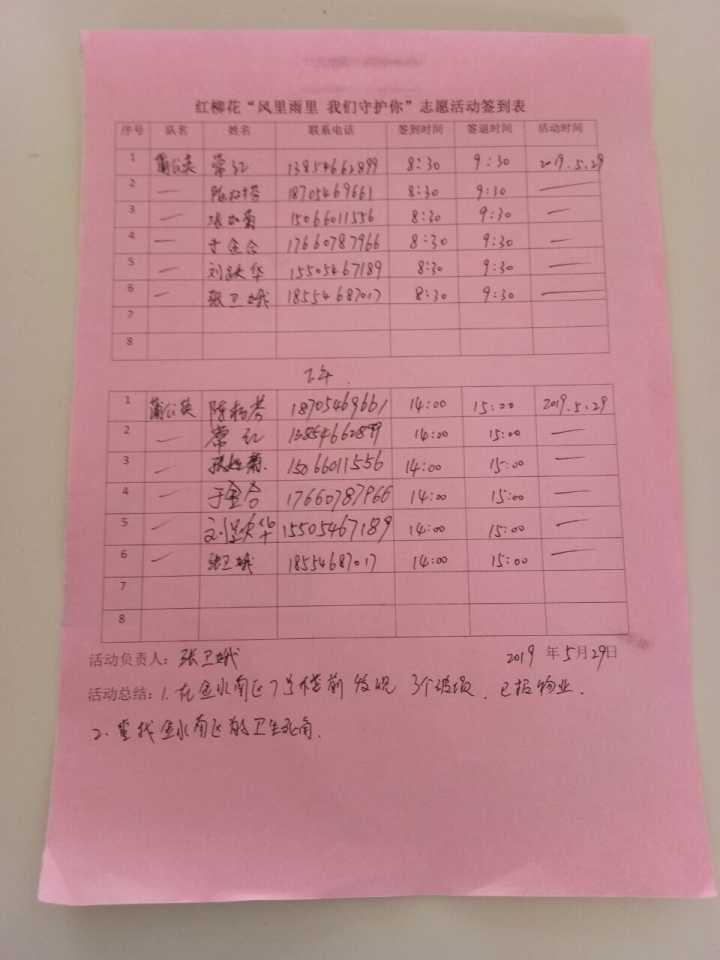 红柳花“风里雨里 我们守护你”志愿活动签到表
序号 队名 姓名 联系电话 签到时间 签退时间 活动时间
1 蒲公英 常红 13854662899 8:30 9:30 2019.5.29
2 — 18705469661 8:30 9:30 —
3 — 15066011556 8:30 9:30 —
4 — 于金合 17660787966 8:30 9:30 —
5 — 刘跃华 15505467189 8:30 9:30 —
6 — 张卫娥 18554687017 8:30 9:30 —
7
8
下午.
1 蒲公英 18705469661 14:00 15:00 2019.5.29
2 — 常红 13854662899 14:00 15:00 —
3 — 15066011556 14:00 15:00 —
4 — 于金合 17660787966 14:00 15:00 —
5 — 刘跃华 15505467189 14:00 15:00 —
6 — 张卫娥 18554687017 14:00 15:00 —
7
8
活动负责人: 张卫娥 2019 年 5 月 29 日
活动总结: 1.在鱼水南区7号楼前发现 3个破损、已报物业.
2.查找鱼水南区前的卫生死角.